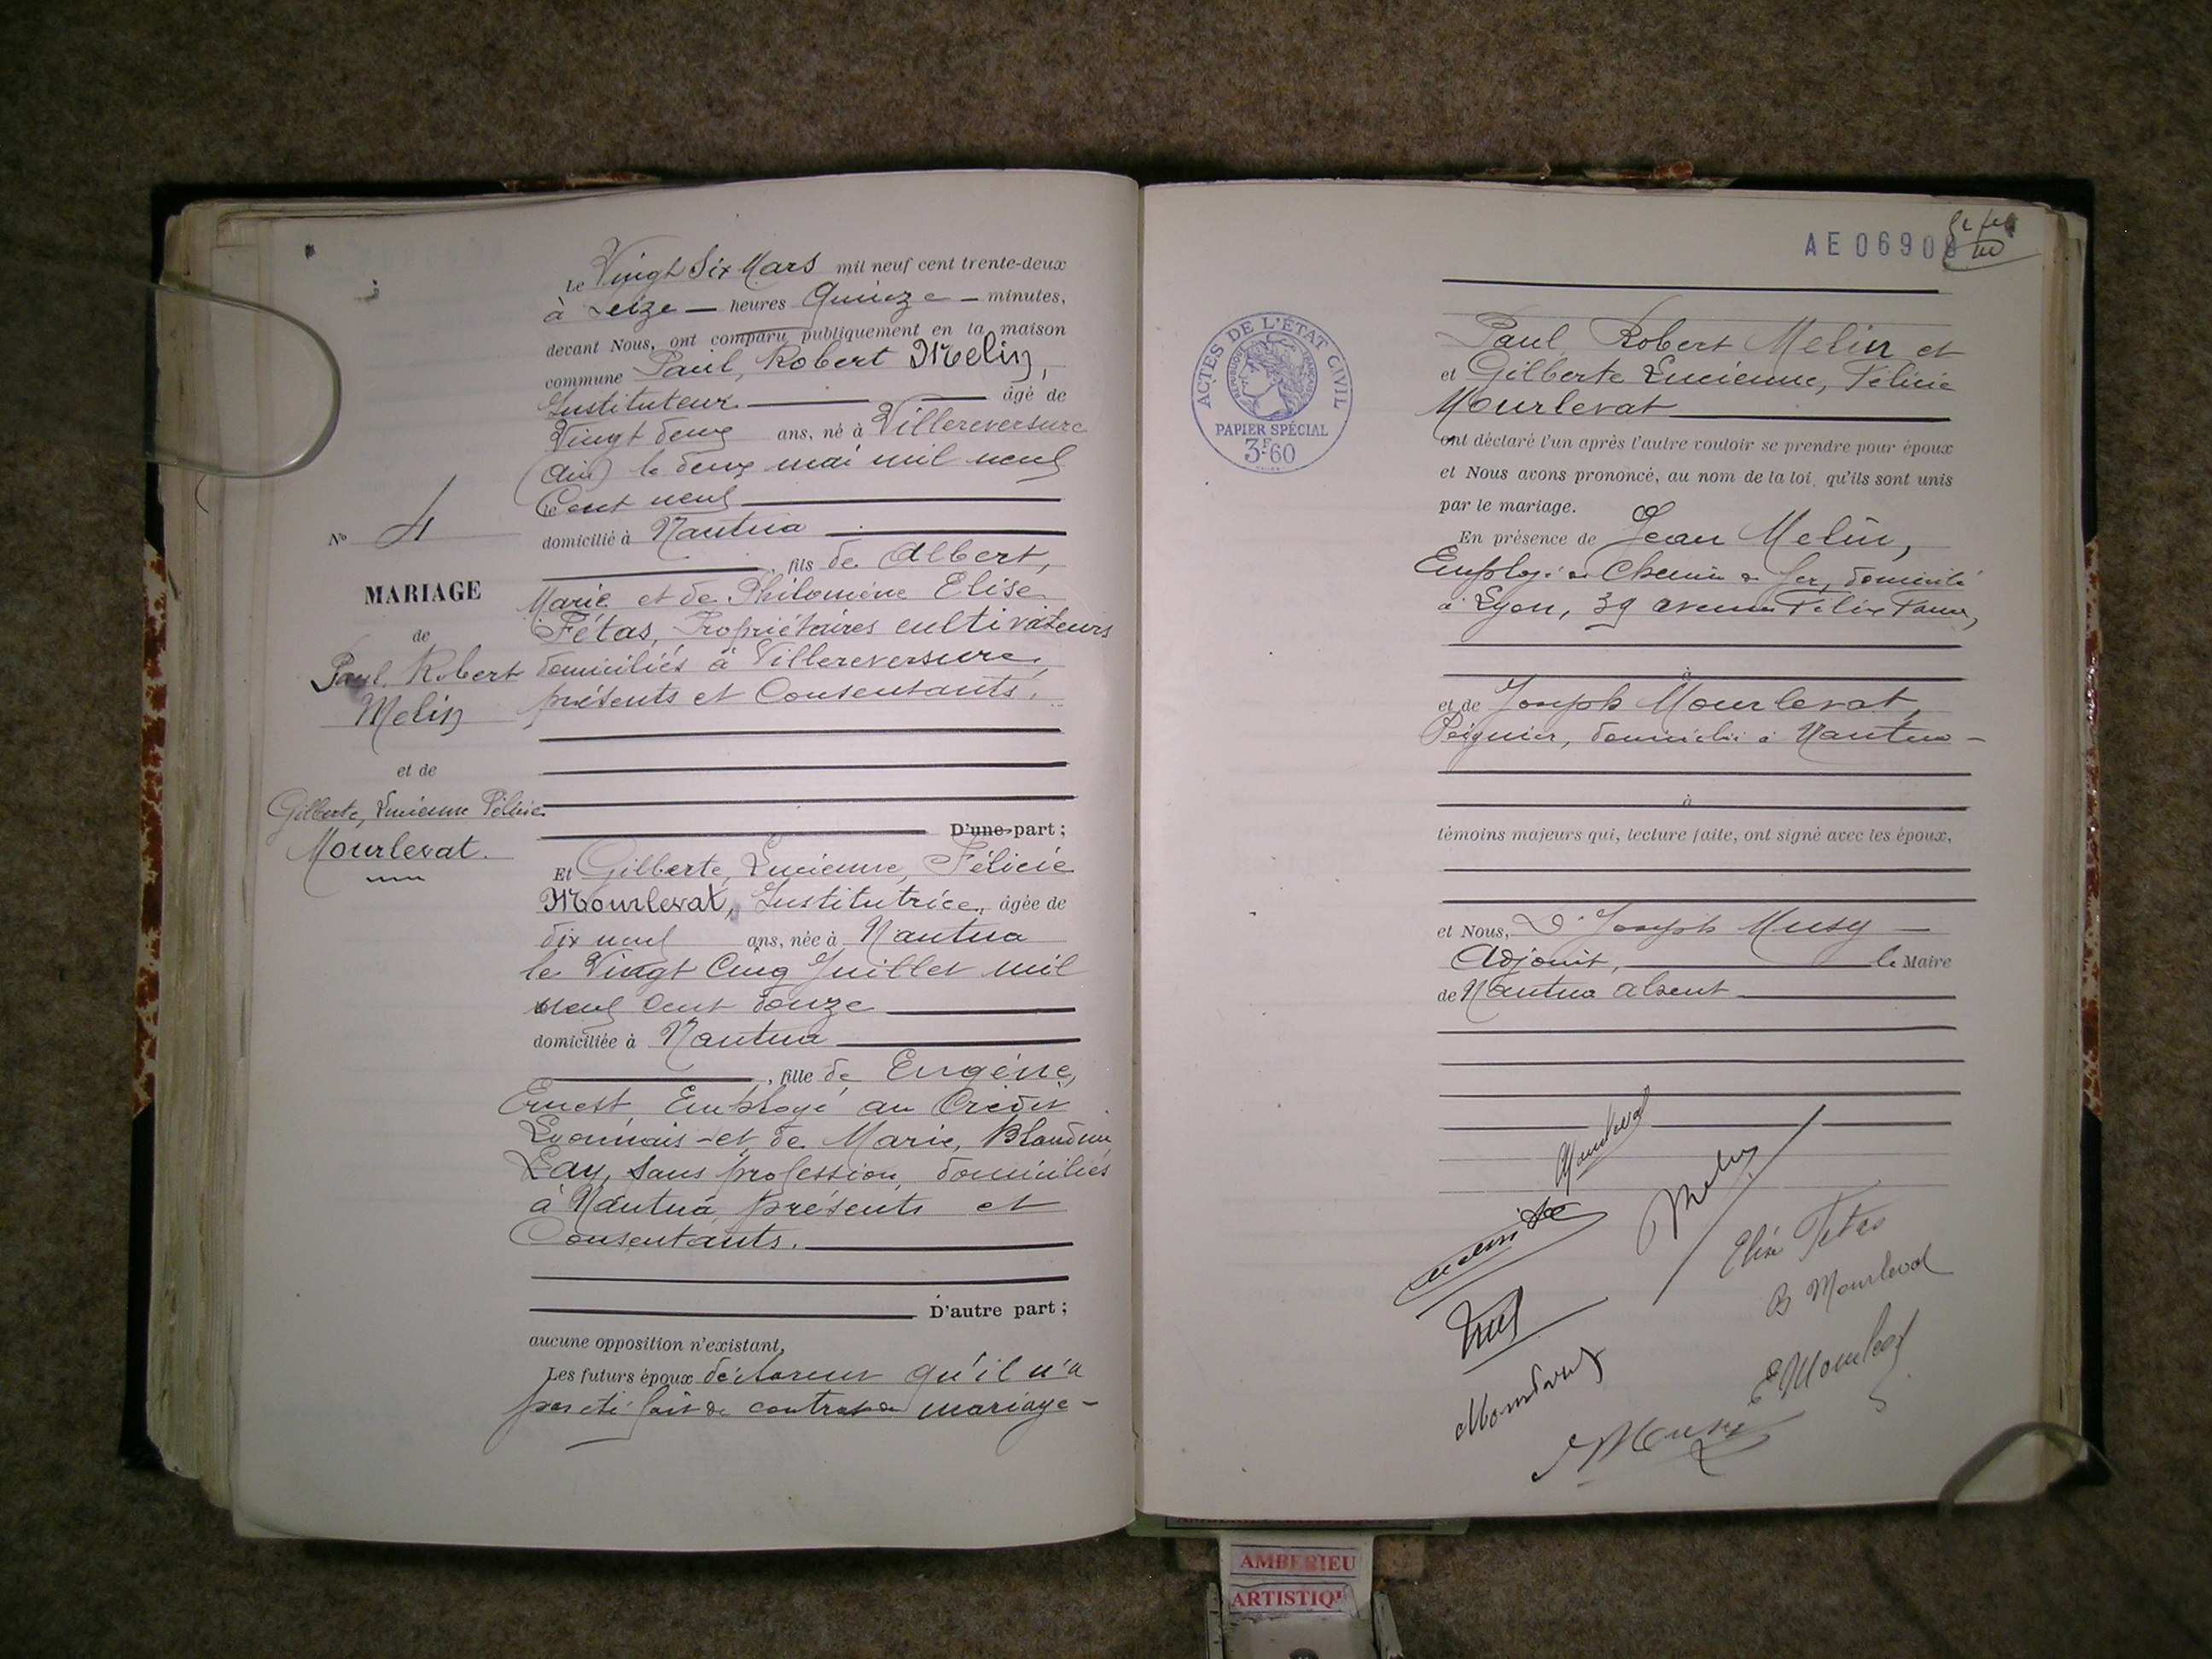 Le Vingt Six Mars mil neuf cent trente-deux
à Seize — heures Quinze — minutes,
devant Nous, ont comparu publiquement en la maison
commune Paul, Robert Melin,
Instituteur âgé de
Vingt deux ans, né à Villereversure
(Ain) le deux mai mil neuf
Cent neuf
domicilié à Nantua
, fils de Albert,
Marie et de Philomène Elise
Fétas, Propriétaires cultivateurs
domiciliés à Villereversure,
présents et Consentants.
D'une part;
Et Gilberte, Lucienne, Félicie
Mourlevat, Institutrice, âgée de
dix neuf ans, née à Nantua
le Vingt Cinq Juillet mil
neuf Cent douze
domiciliée à Nantua
, fille de Eugène,
Ernest, Employé au Crédit
Lyonnais et de Marie, Blandine
Lay, Sans profession, domiciliés
à Nantua, présents et
Consentants.
D'autre part;
aucune opposition n'existant,
Les futurs époux déclarent qu'il n'a
pas été fait de contrat de mariage -
No 4
MARIAGE
de
Paul, Robert
Melin
et de
Gilberte, Lucienne Félicie
Mourlevat.
AE 0690
ACTES DE L'ÉTAT CIVIL
RÉPUBLIQUE FRANÇAISE
PAPIER SPÉCIAL
3F60
Paul Robert Melin et
et Gilberte Lucienne, Félicie
Mourlevat
ont déclaré l'un après l'autre vouloir se prendre pour époux
et Nous avons prononcé, au nom de la loi, qu'ils sont unis
par le mariage.
En présence de Jean Melin,
Employé de Chemin de fer, domicilié
à Lyon, 39 avenue Félix Faure,
à
et de Joseph Mourlevat,
Peignier, domicilié à Nantua -
à
témoins majeurs qui, lecture faite, ont signé avec les époux,
et Nous, Dr Joseph Musy
Adjoint, le Maire
de Nantua absent
Mourlevat
Melin
Elise Fetas
B Mourlevat
E Mourlevat
Musy
AMBERIEU
ARTISTIQU